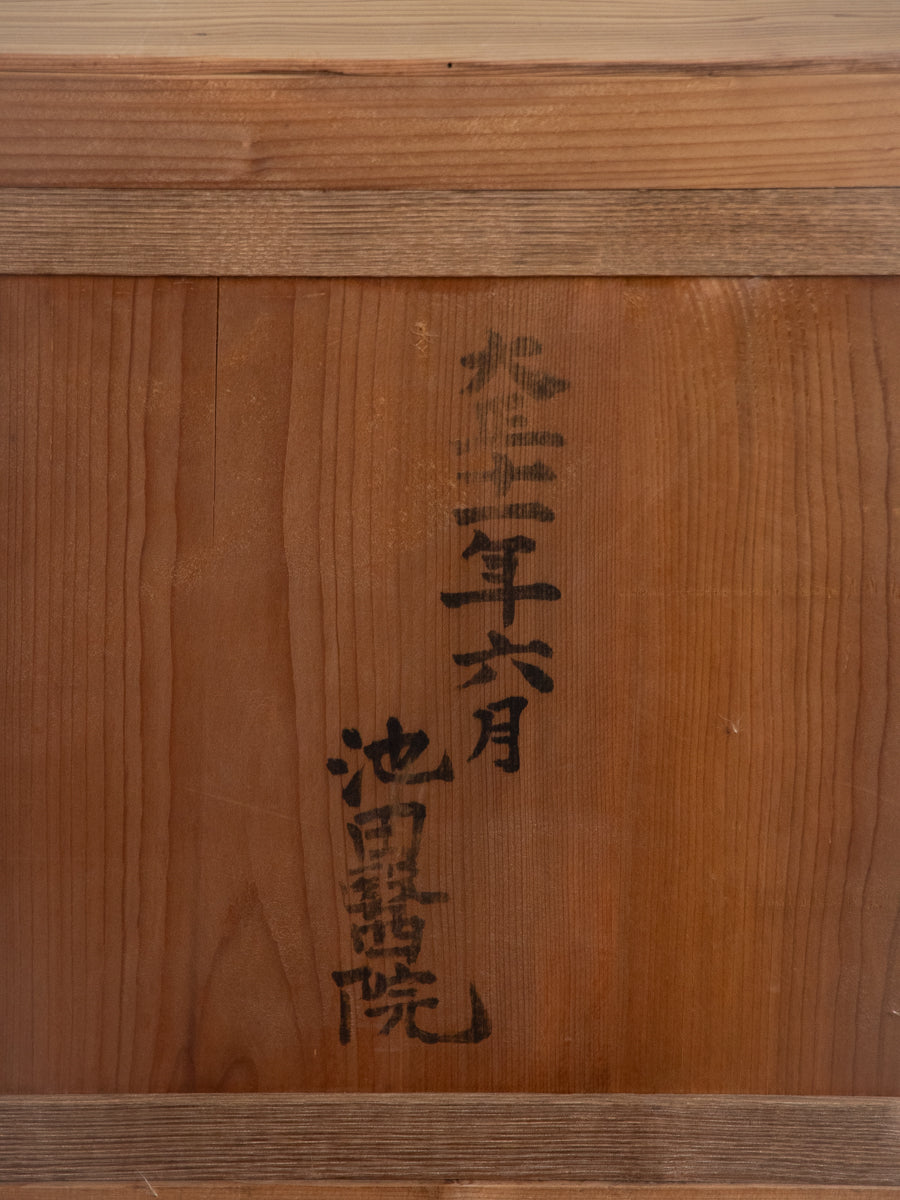 大正十一年六月
池田醫院